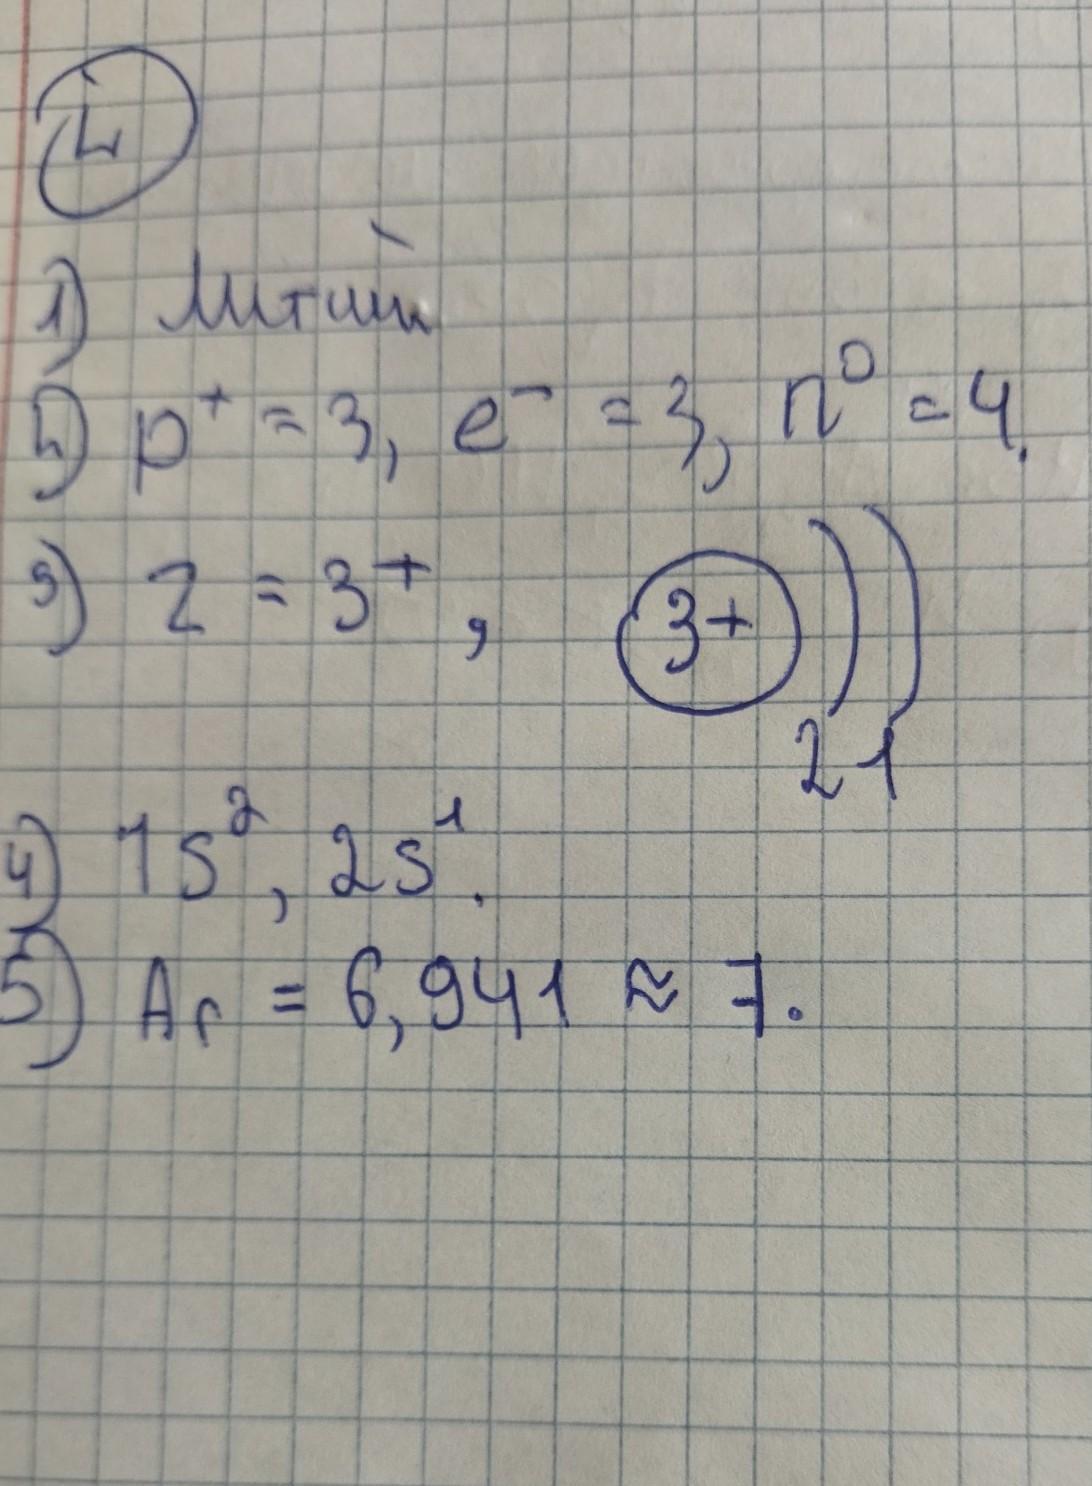 1) Литий
2) p⁺ = 3, e⁻ = 3, n⁰ = 4.
3) Z = 3⁺, 3+ ) )
2 1
4) 1s², 2s¹.
5) Ar = 6,941 ≈ 7.